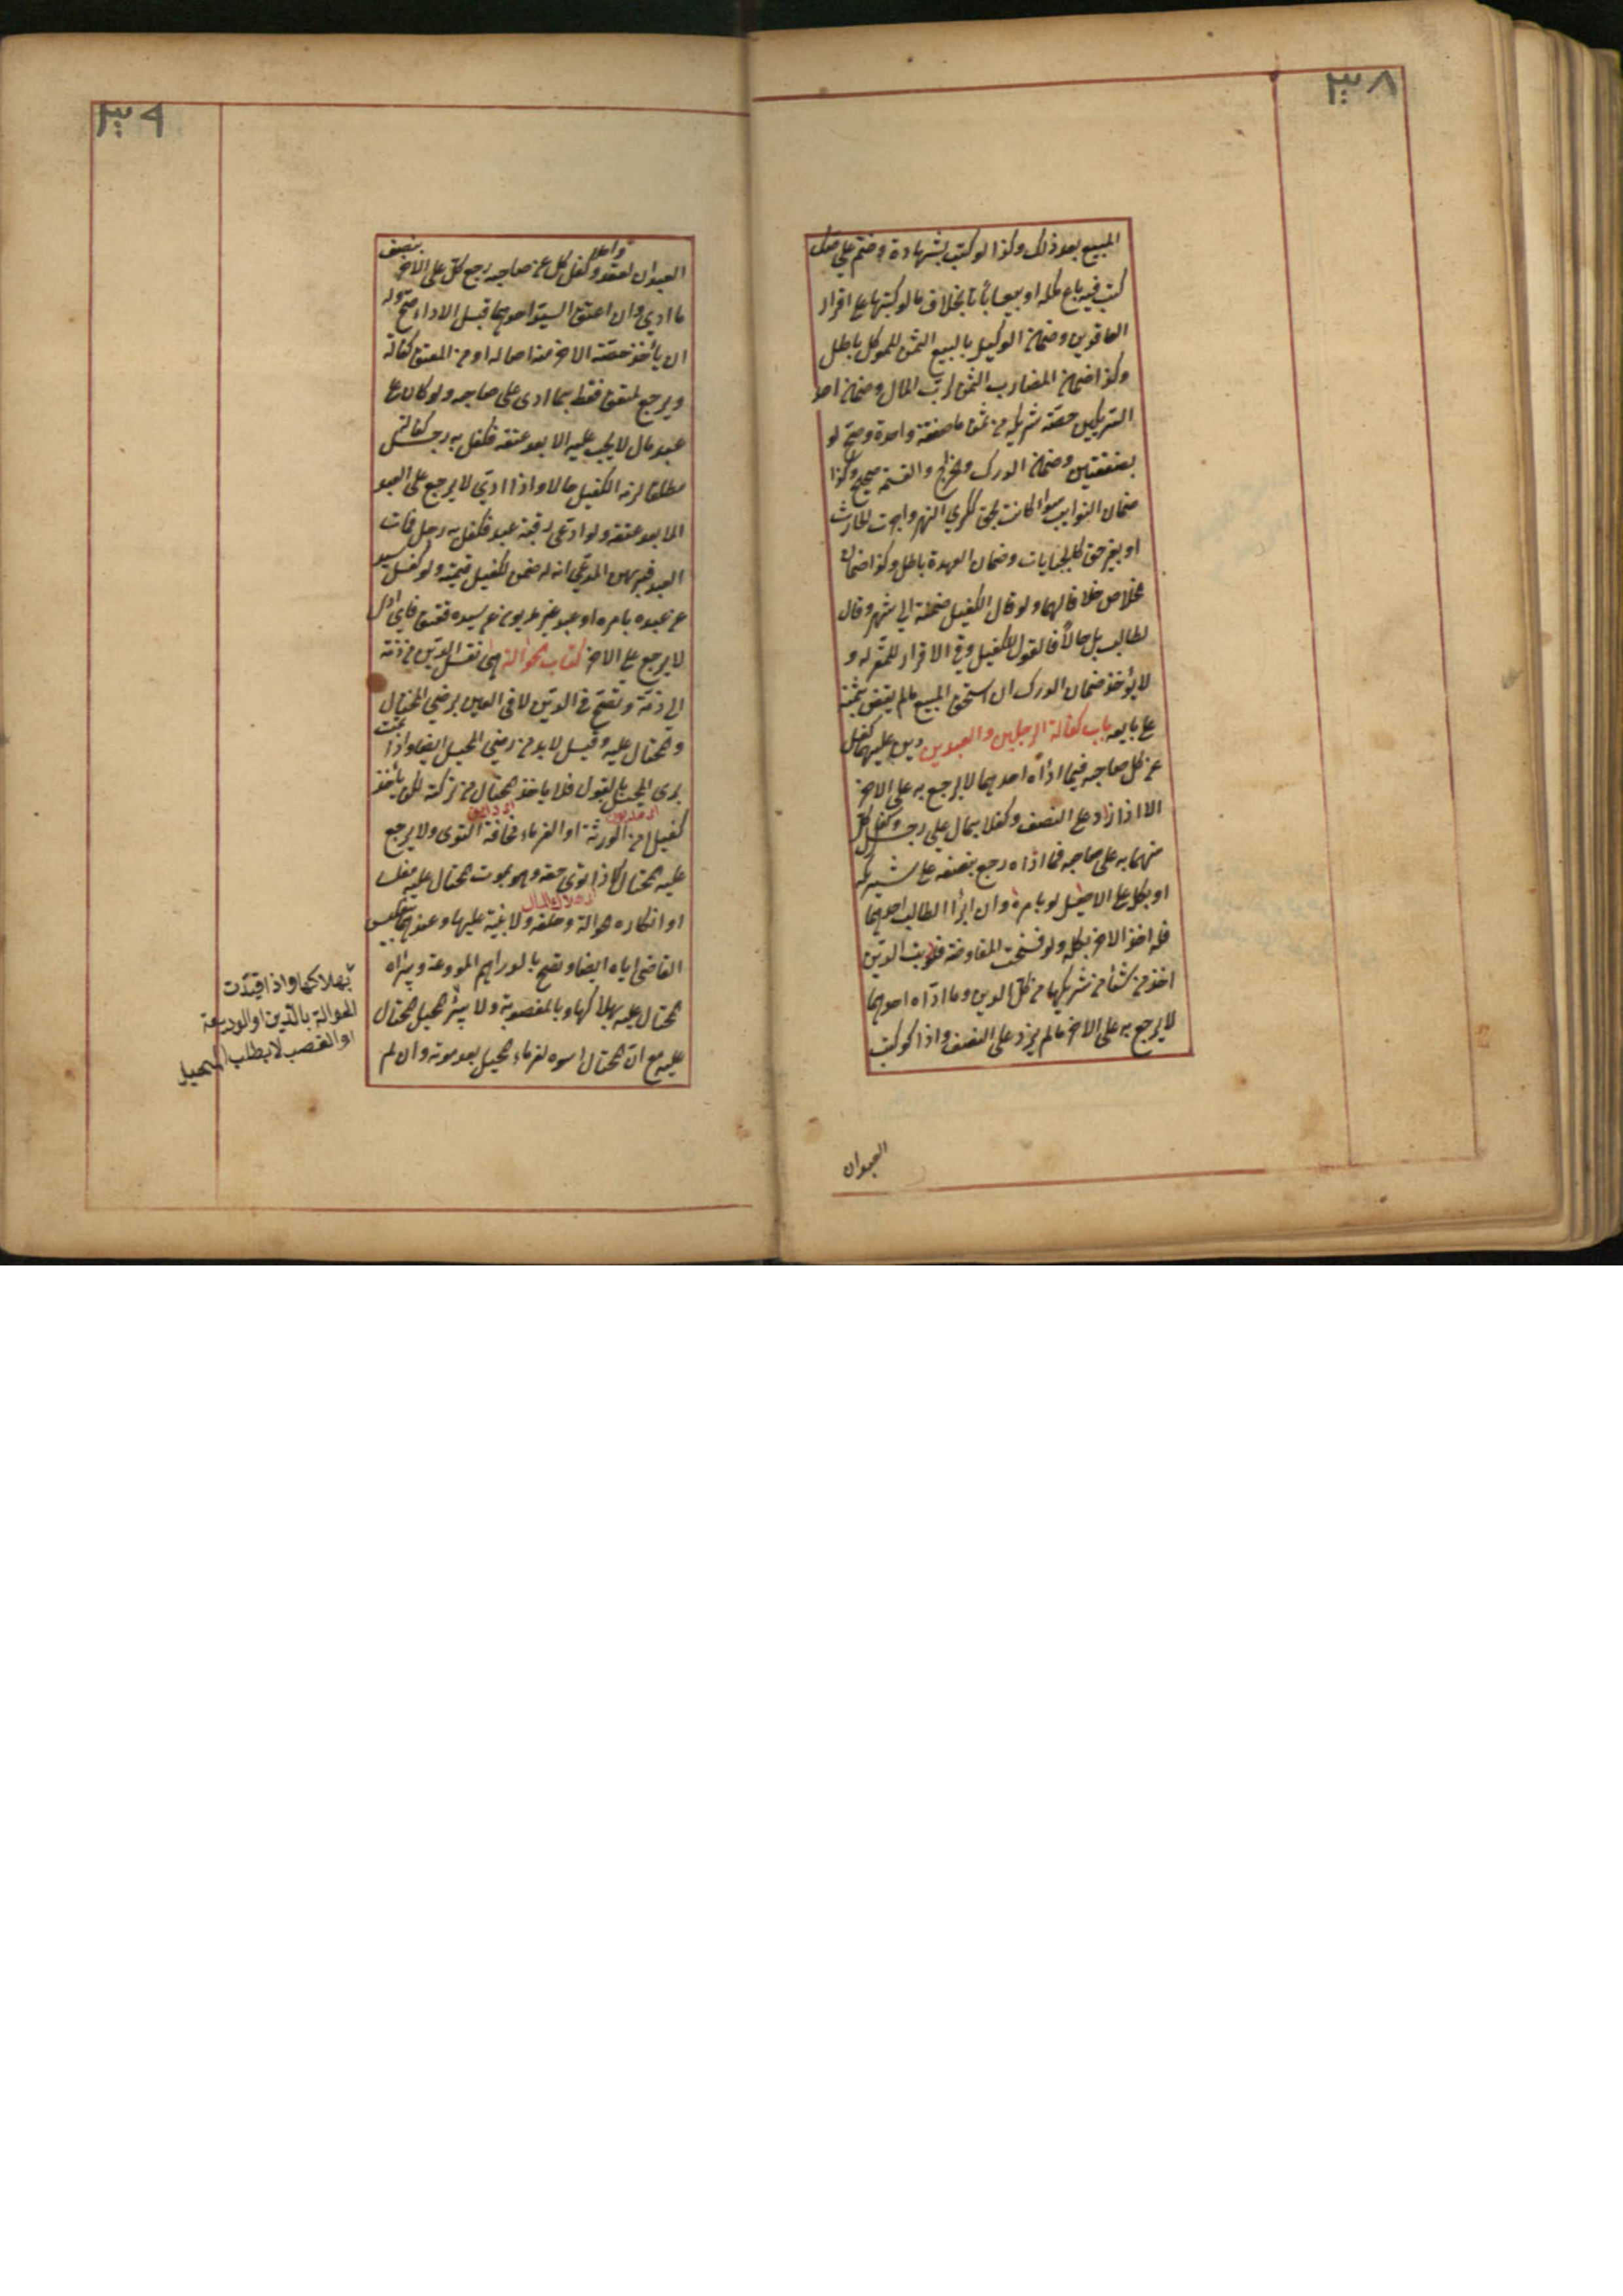 ٣٠٨
المبيع بعد ذلك وكذا لو كتب شهادة وختم على صك
كتب فيه باع ملكه او بيعا باتا بخلاف ما لو كتبها على اقرار
العاقدين وضمان الوكيل بالبيع الثمن للموكل باطل
وكذا ضمان المضارب الثمن لرب المال وضمان احد
الشريكين حصة شريكه من ثمن ما صفقة واحدة وصح لو
بصفقتين وضمان الدرك والخراج والقسمة صحيح وكذا
ضمان النوايب سوا كانت بحق ككري النهر واجرت الحارث
او بغير حق كالجبايات وضمان العهدة باطل وكذا ضمان
الخلاص خلافا لهما ولو قال الكفيل ضمنته الى شهر وقال
لطالب بل حالاً فالقول للكفيل وفي الاقرار للمقر له و
لا يؤخذ ضمان الدرك ان استحق المبيع ما لم يقض بثمنه
على بايعه باب كفالة الرجلين والعبدين دين عليهما كفل
عن كل صاحبه فيما اداه احدهما لا يرجع به على الاخر
الا اذا زاد على النصف وكفلا بمال على رجل وكفل كل
منهما به على صاحبه فما اداه رجع بنصفه على شريكه
او بكل على الاصيل لو بامره وان ابرأ الطالب احدهما
فله اخذ الاخر بكله ولو فسخت المفاوضة فلرب الدين
اخذ من شأ من شريكيها من كل الدين وما اداه احدهما
لا يرجع به على الاخر ما لم يزد على النصف واذا كوتب
العبدان
٣٠٩
العبدان بعقد واحد وكفل كل عن صاحبه رجع كل على الاخر بنصف
ما ادي وان اعتق السيد احدهما قبل الاداء صح وله
ان يأخذ حصة الاخر منه اصالة او من المعتق كفالة
ويرجع المعتق فقط بما ادى على صاحبه ولو كان على
عبد مال لا يجب عليه الا بعد عتقه فكفل به رجل كفالة
مطلقا لزم الكفيل حالا واذا ادي لا يرجع على العبد
الا بعد عتقه ولو ادعى رقبة عبد فكفل به رجل فمات
العبد فبرهن المدعي انه له ضمن الكفيل قيمته ولو كفل سيد
عن عبده بامره او عبد غير مديون عن سيده فعتق فاي ادى
لا يرجع على الاخر كتاب الحوالة هي نقل الدين من ذمة
الى ذمة وتصح في الدين لا في العين برضى المحتال
والمحتال عليه وقيل لا بد من رضى المحيل ايضا واذا تمت
برى المحيل بالقبول فلا ياخذ المحتال من تركته لكن يأخذ
اى مديون
اى داين
كفيلا من الورثة او الغرماء مخافة التوى ولا يرجع
عليه المحتال الا اذا توى حقه وهو بموت المحتال عليه مفلسا
اى هلاك المال
او انكاره الحوالة وحلفه ولا بينة عليها وعندهما بتفليس
القاضي اياه ايضا وتصح بالدراهم المودعة ويبرأ
المحتال عليه بهلاكها وبالمغصوبة ولا يبرأ المحيل المحتال
عليه مع ان المحتال اسوه لغرماء المحيل بعد موته وان لم
بهلاكها واذا قيدت
الحوالة بالدين او الوديعة
او الغصب لا يطلب المحيل